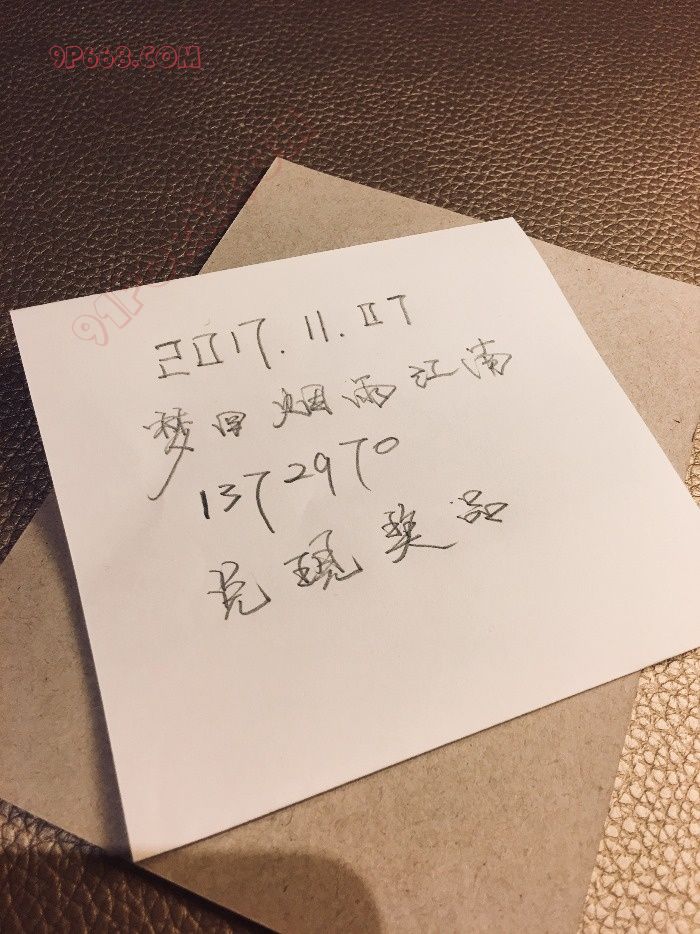 9P668.COM
2017.11.07
梦回烟雨江南
1372970
兑現奖品